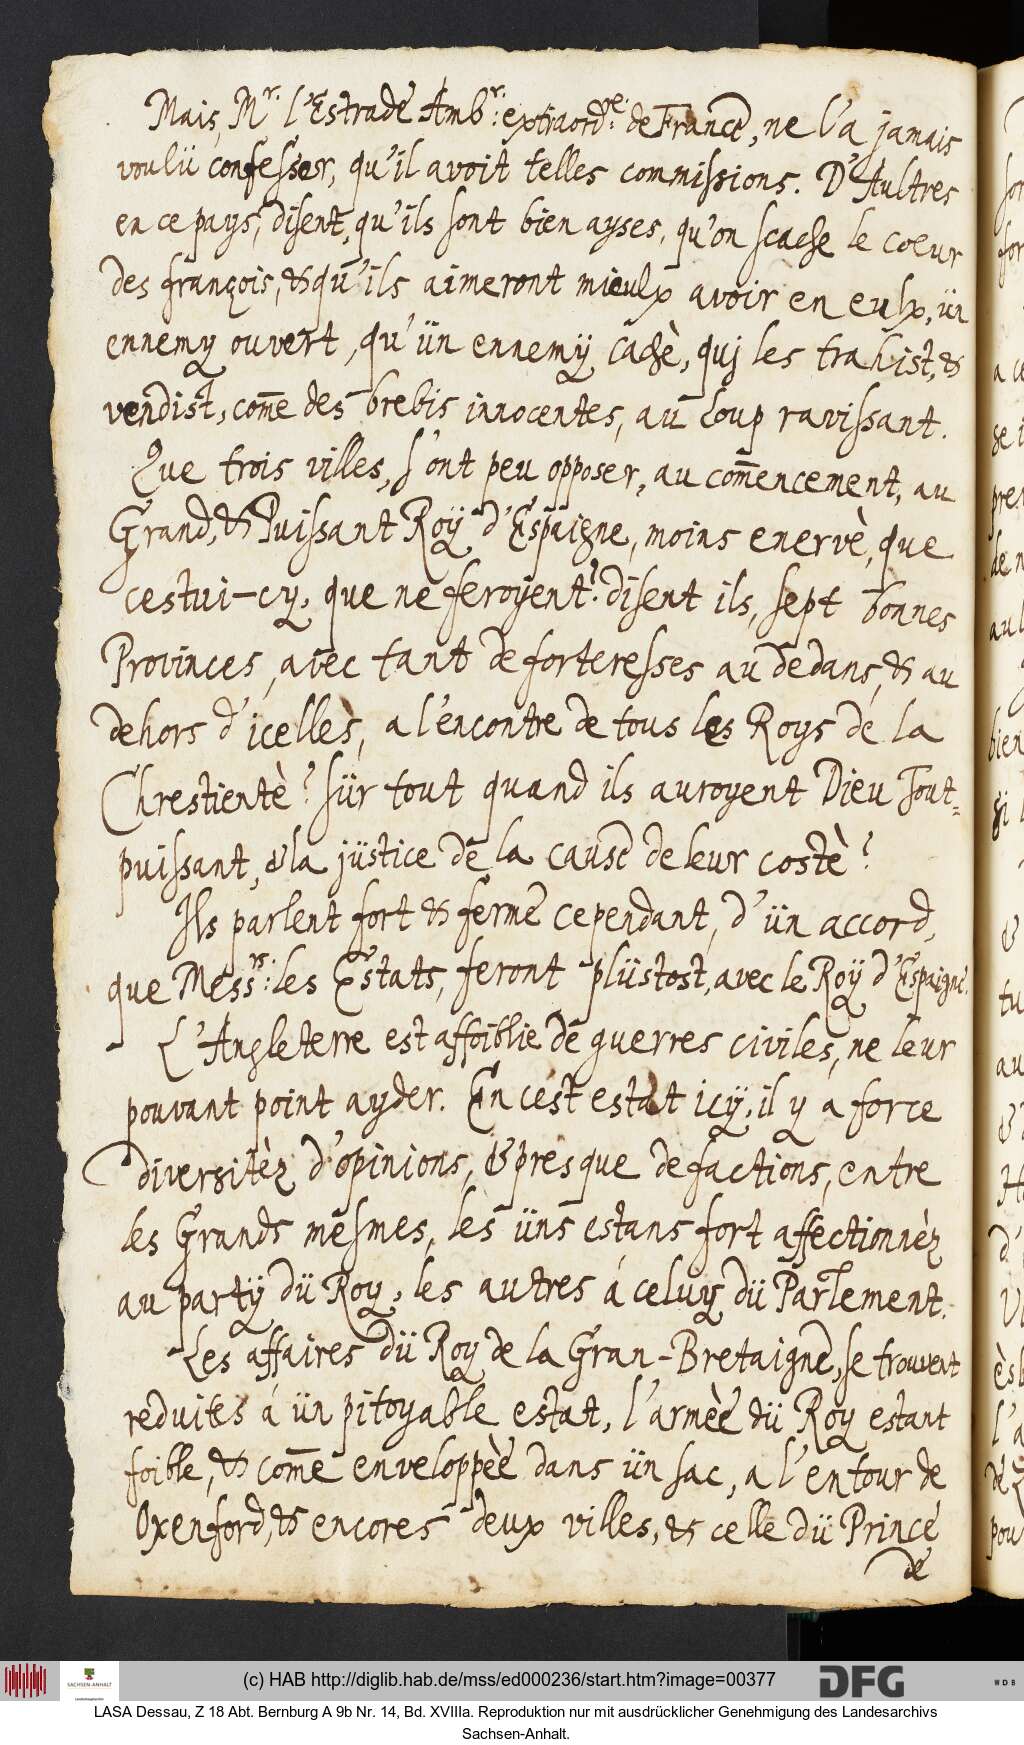 Mais, Mr. l'Estrade Ambr: extraord:re: de France, ne l'a jamais
voulü confesser, qu'il avoit telles commissions. D'Aultres
en ce pays, disent, qu'ils sont bien ayses, qu'on scache le coeur
des françois, & qu'ils aimeront mieulx avoir en eulx, ün
ennemy ouvert, qu'ün ennemÿ cachè, quj les trahist, &
vendist, com̄e des brebis innocentes, au loup ravissant.
Que trois villes, s'ont peu opposer, au com̄encement, au
Grand, & Puissant Roÿ d'Espaigne, moins enervè, que
cestui-cy, que ne feroyent? disent ils, sept bonnes
Provinces, avec tant de forteresses au dedans, & au
dehors d'icelles, a l'encontre de tous les Roys de la
Chrestientè? sür tout quand ils auroyent Dieu Tout-
puissant, & la jüstice de la cause de leur costè?
Ils parlent fort & ferme cependant, d'ün accord,
que Messrs: les Estats, feront plüstost, avec le Roÿ d'Espaigne.
L'Angleterre est affoiblie de guerres civiles, ne leur
pouvant point ayder. En cest estat icÿ, il y a force
diversitèz d'opinions, & presque de factions, entre
les Grands mesmes, les üns estans fort affectionnèz
au partÿ dü Roy, les autres á celuy dü Parlement.
Les affaires dü Roy de la Gran-Bretaigne, se trouvent
reduites á ün pitoyable estat, l'armèe dü Roy estant
foible, & com̄e enveloppèe dans ün sac, a l'entour de
Oxenford, & encores deux villes, & celle dü Prince
de
(c) HAB http://diglib.hab.de/mss/ed000236/start.htm?image=00377
SACHSEN-ANHALT
DFG
WDB
LASA Dessau, Z 18 Abt. Bernburg A 9b Nr. 14, Bd. XVIIIa. Reproduktion nur mit ausdrücklicher Genehmigung des Landesarchivs
Sachsen-Anhalt.